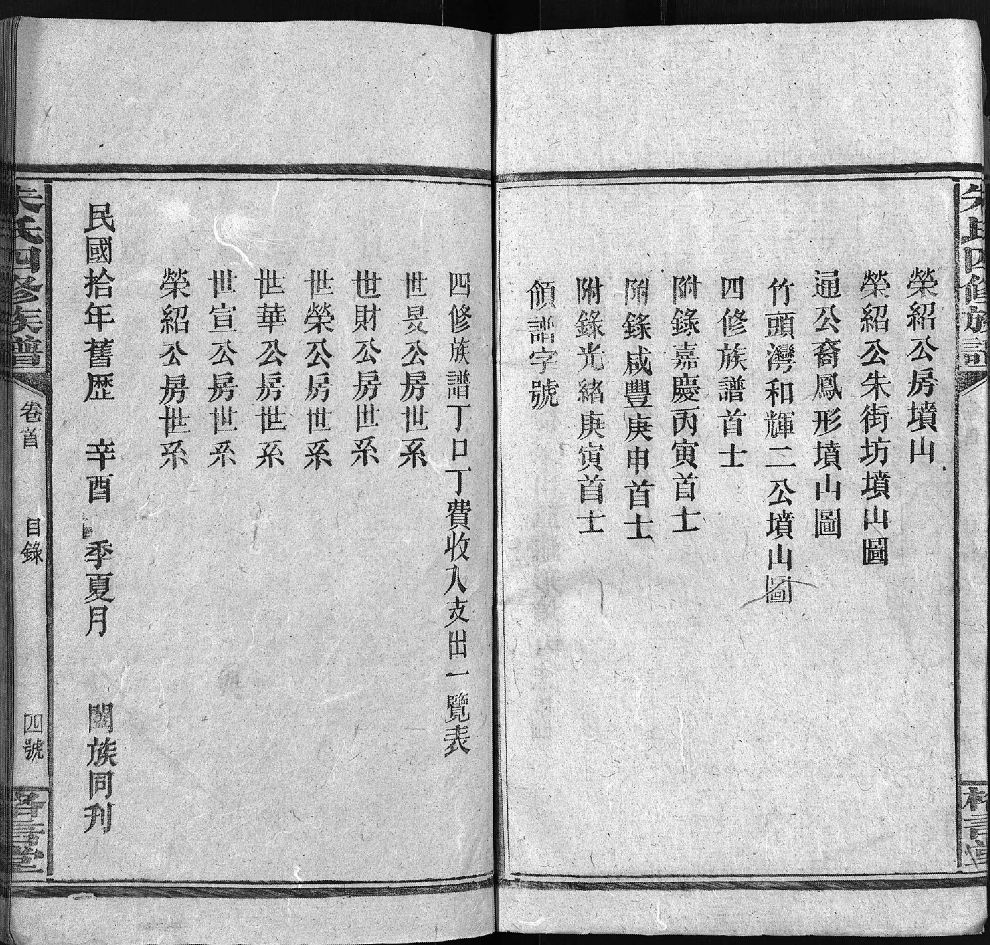 朱氏四修族譜
榮紹公房墳山
榮紹公朱街坊墳山圖
通公裔鳳形墳山圖
竹頭灣和輝二公墳山圖
四修族譜首士
附錄嘉慶丙寅首士
附錄咸豐庚申首士
附錄光緒庚寅首士
領譜字號
四修族譜丁口丁費收入支出一覽表
世旻公房世系
世財公房世系
世榮公房世系
世華公房世系
世宣公房世系
榮紹公房世系
民國拾年舊歷 辛酉 季夏月 闔族同刊
朱氏四修族譜 卷首 目錄 四號